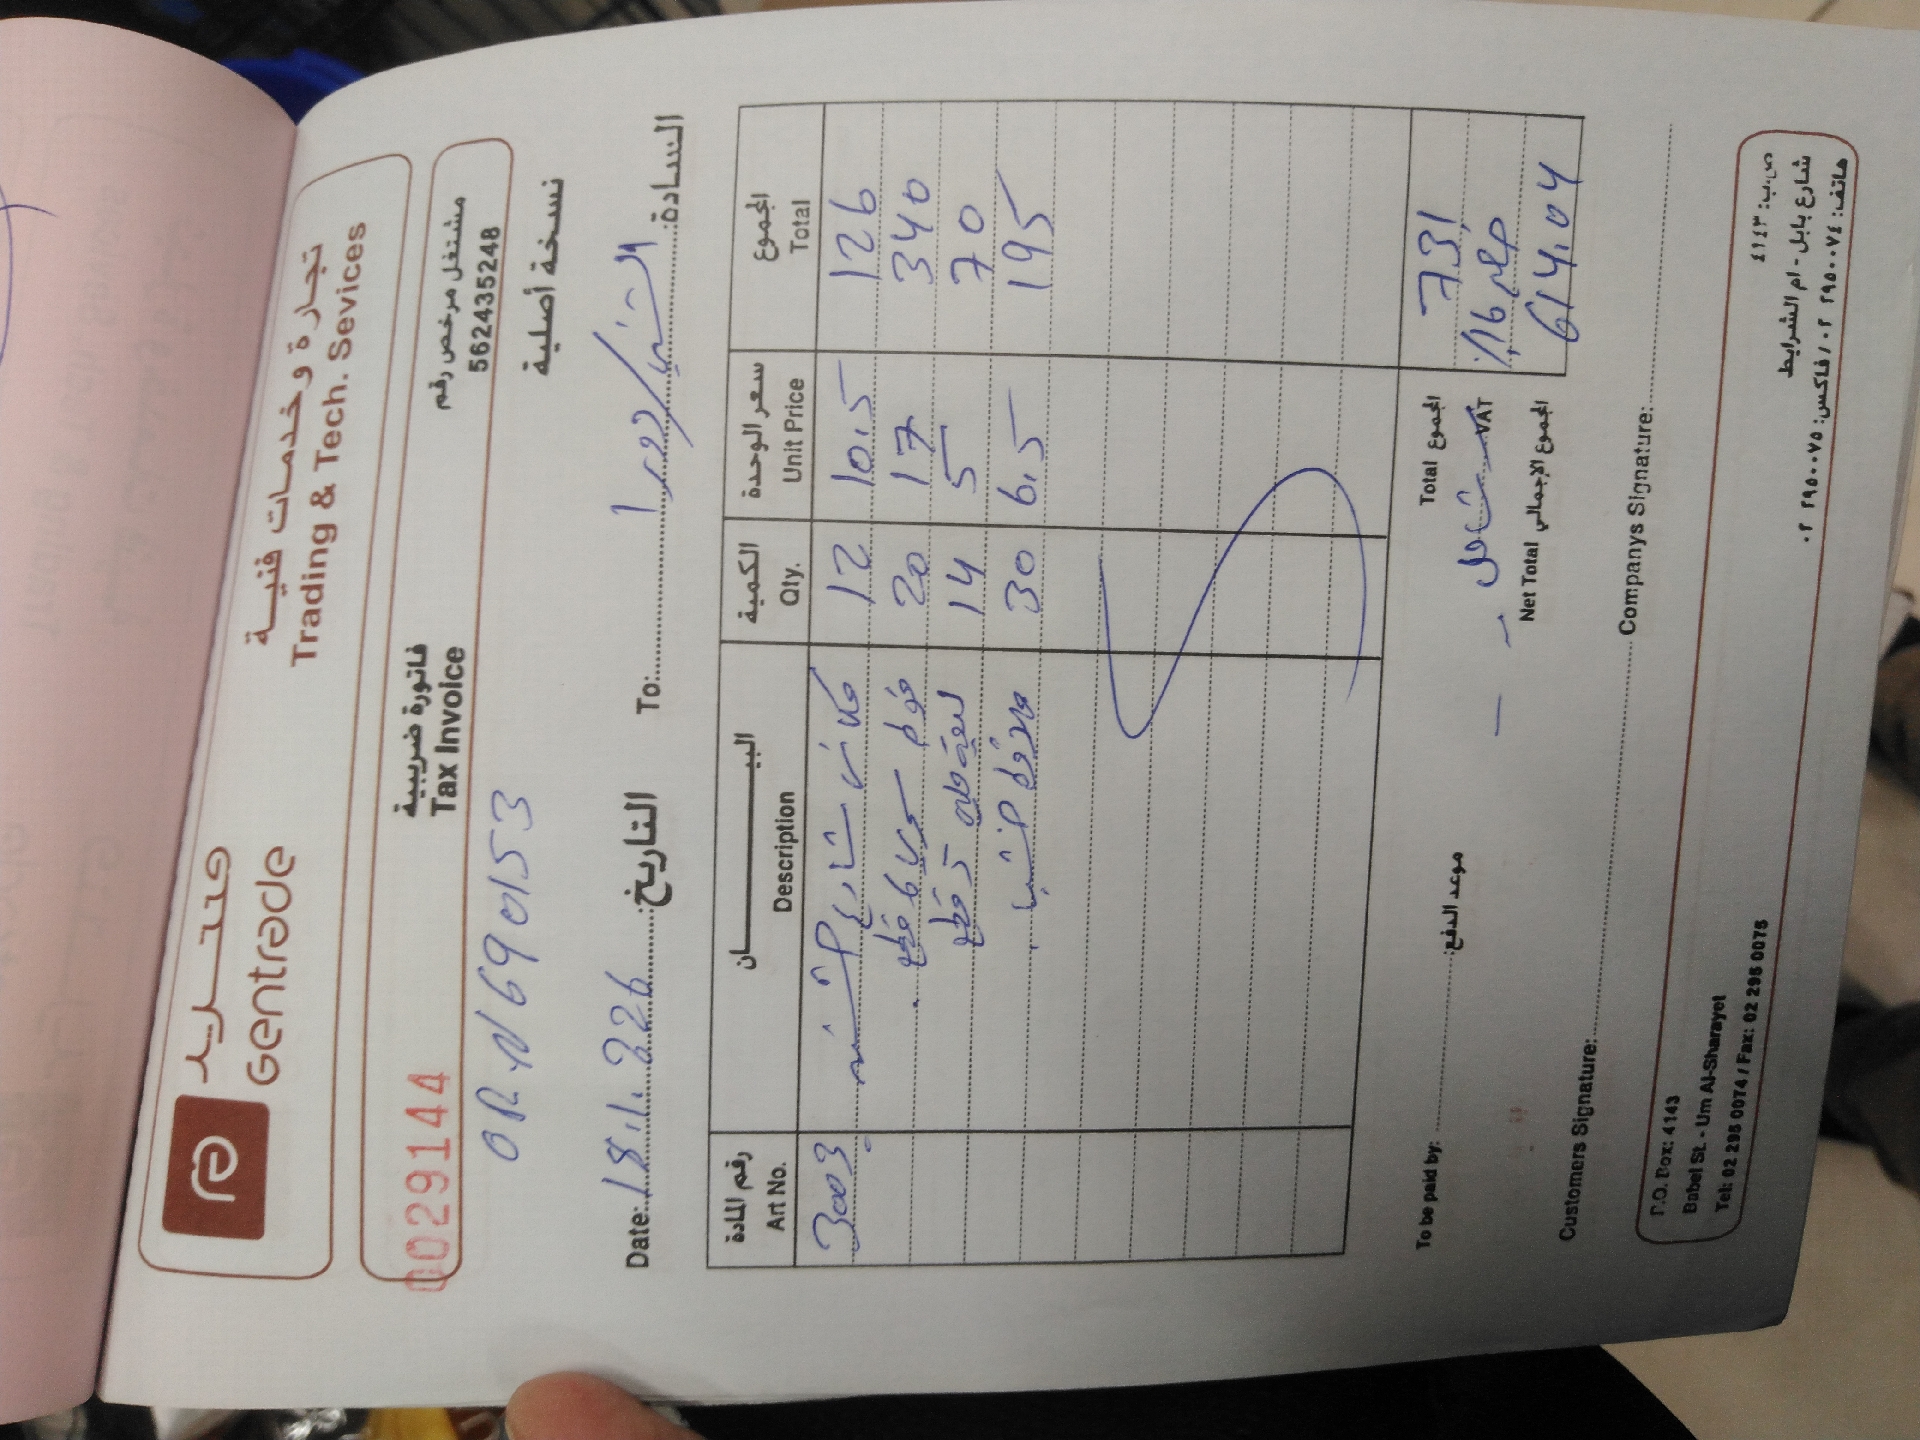 جنتريد
Gentrade
تجارة وخدمات فنية
Trading & Tech. Sevices
فاتورة ضريبية
Tax Invoice
مشتغل مرخص رقم
562435248
0029144
نسخة أصلية
ORN690153
Date: 18.1.226 التاريخ:
To: السادة: الشني/دورا
رقم المادة البيـــــان الكمية سعر الوحدة المجموع
Art No. Description Qty. Unit Price Total
3003 12 10.5 126
20 17 340
14 5 70
30 6.5 195
Total المجموع 731
شامل VAT خصم 16%
Net Total المجموع الإجمالي 614.04
To be paid by: موعد الدفع:
Customers Signature: Companys Signature:
P.O. Box: 4143
Babel St. - Um Al-Sharayet
Tel: 02 295 0074 / Fax: 02 295 0075
ص.ب: ٤١٤٣
شارع بابل - ام الشرايط
هاتف: ٠٢ ٢٩٥٠٠٧٤ / فاكس: ٠٢ ٢٩٥٠٠٧٥